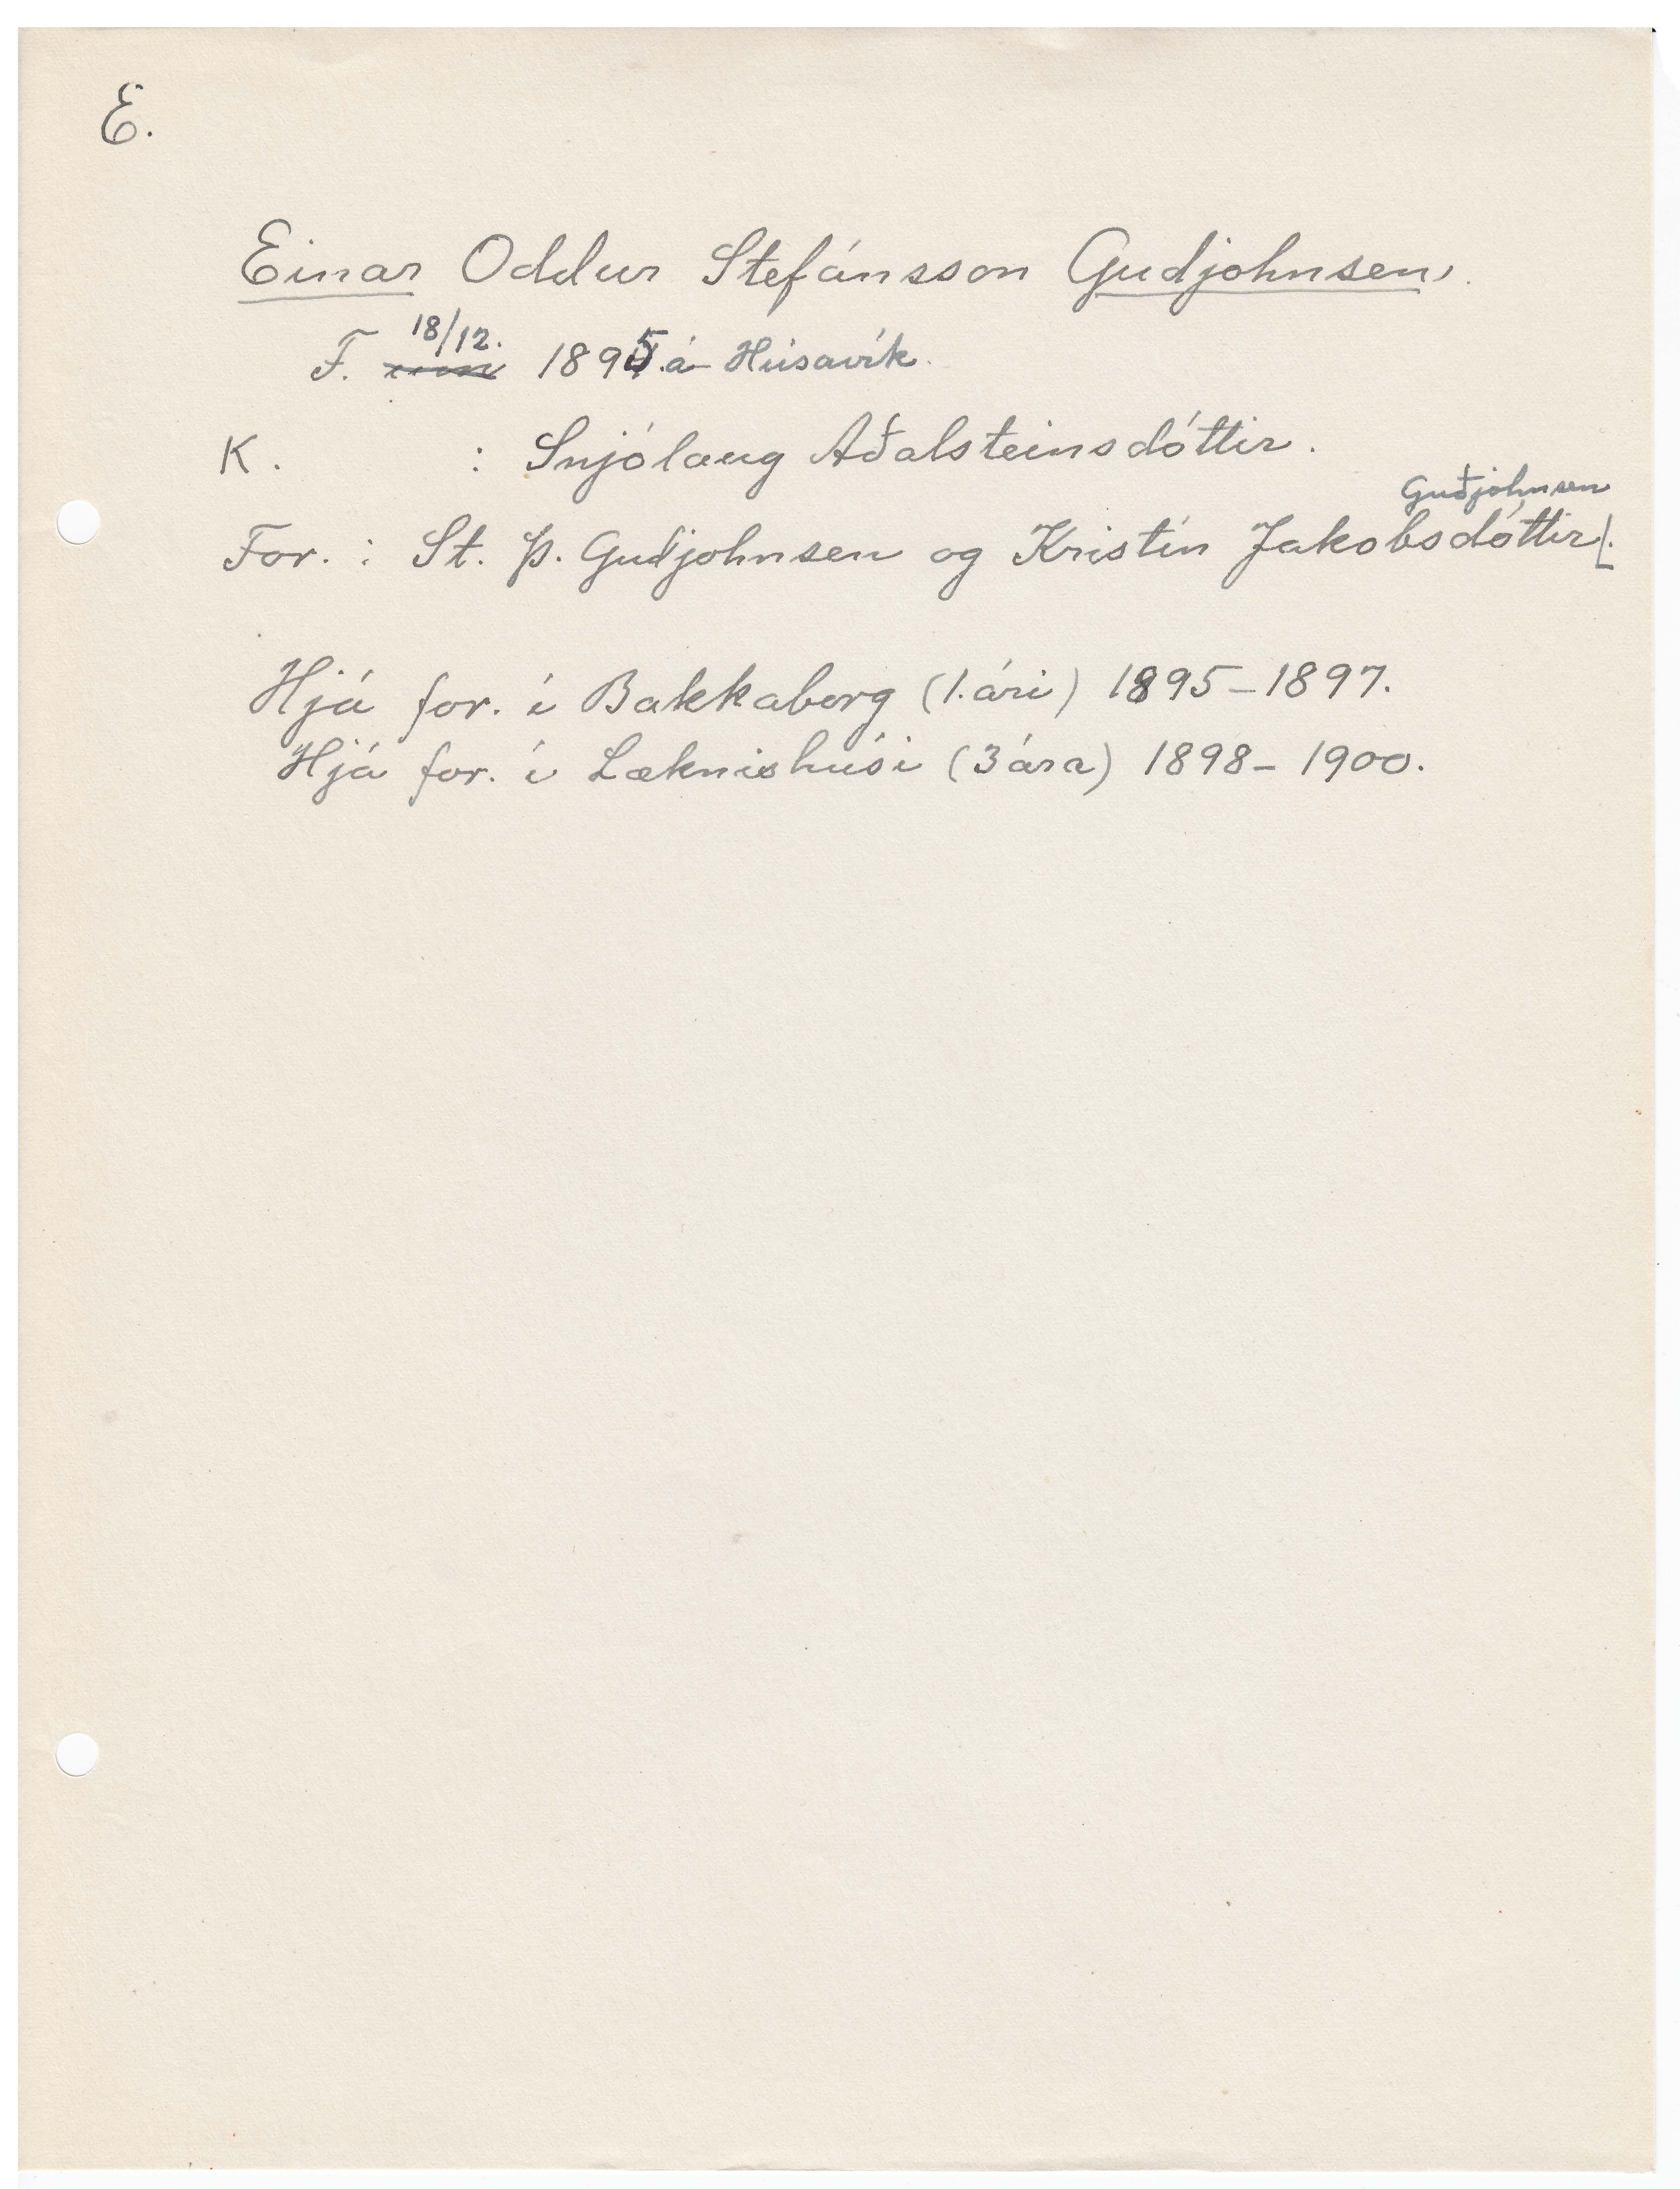 E.
Einar Oddur Stefánsson Gudjohnsen.
F. 18/12. 1895. á Húsavík.
K. : Snjólaug Aðalsteinsdóttir.
Guðjohnsen
For. : St. Þ. Guðjohnsen og Kristín Jakobsdóttir.
Hjá for. í Bakkaborg (1. ári) 1895-1897.
Hjá for. í Læknishúsi (3 ára) 1898-1900.